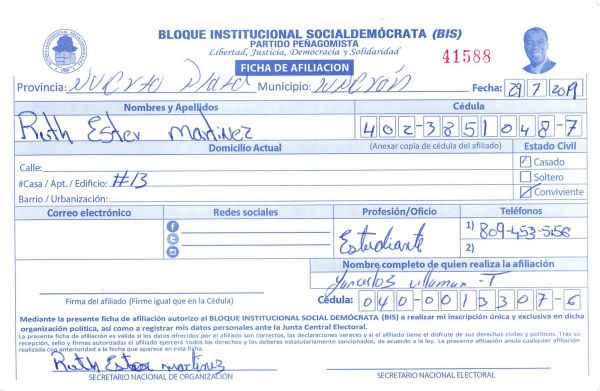 BLOQUE INSTITUCIONAL SOCIALDEMÓCRATA (BIS)
PARTIDO PEÑAGOMISTA
Libertad, Justicia, Democracia y Solidaridad
41588
FICHA DE AFILIACION
Provincia: Puerto Plata Municipio: Fecha: 29/7/2019
Nombres y Apellidos Cédula
Ruth Ester Martinez 402-3851048-7
Domicilio Actual (Anexar copia de cédula del afiliado) Estado Civil
Calle: Casado
#Casa / Apt. / Edificio: #13 Soltero
Barrio / Urbanización: Conviviente
Correo electrónico Redes sociales Profesión/Oficio Teléfonos
Estudiante 1) 809-453-5156
2)
Nombre completo de quien realiza la afiliación
Yancarlos T
Firma del afiliado (Firme igual que en la Cédula) Cédula: 040-0013307-6
Mediante la presente ficha de afiliación autorizo al BLOQUE INSTITUCIONAL SOCIAL DEMÓCRATA (BIS) a realizar mi inscripción única y exclusiva en dicha
organización política, así como a registrar mis datos personales ante la Junta Central Electoral.
La presente ficha de afiliación es válida si los datos ofrecidos por el afiliado son correctos, las declaraciones veraces y si el afiliado tiene el disfrute de sus derechos civiles y políticos. Tras su
recepción, sello y firmas autorizadas el afiliado ejercerá todos los derechos y los deberes estatutariamente sancionados, de acuerdo a la ley. La presente afiliación anula cualquier afiliación
realizada con anterioridad a la fecha que aparece en esta ficha.
Ruth Ester martinez
SECRETARIO NACIONAL DE ORGANIZACIÓN SECRETARIO NACIONAL ELECTORAL